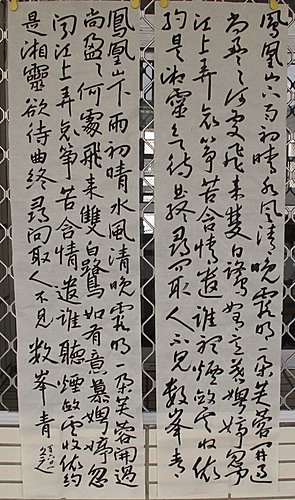 鳳凰山下雨初晴水風清晚霞明一朵芙蓉開過
尚盈盈何處飛來雙白鷺如有意慕娉婷忽聞
江上弄哀箏苦含情遣誰聽煙斂雲收依
約是湘靈欲待曲終尋問取人不見數峯青
鳳凰山下雨初晴水風清晚霞明一朵芙蓉開過
尚盈盈何處飛來雙白鷺如有意慕娉婷忽
聞江上弄哀箏苦含情遣誰聽煙斂雲收依約
是湘靈欲待曲終尋問取人不見數峯青